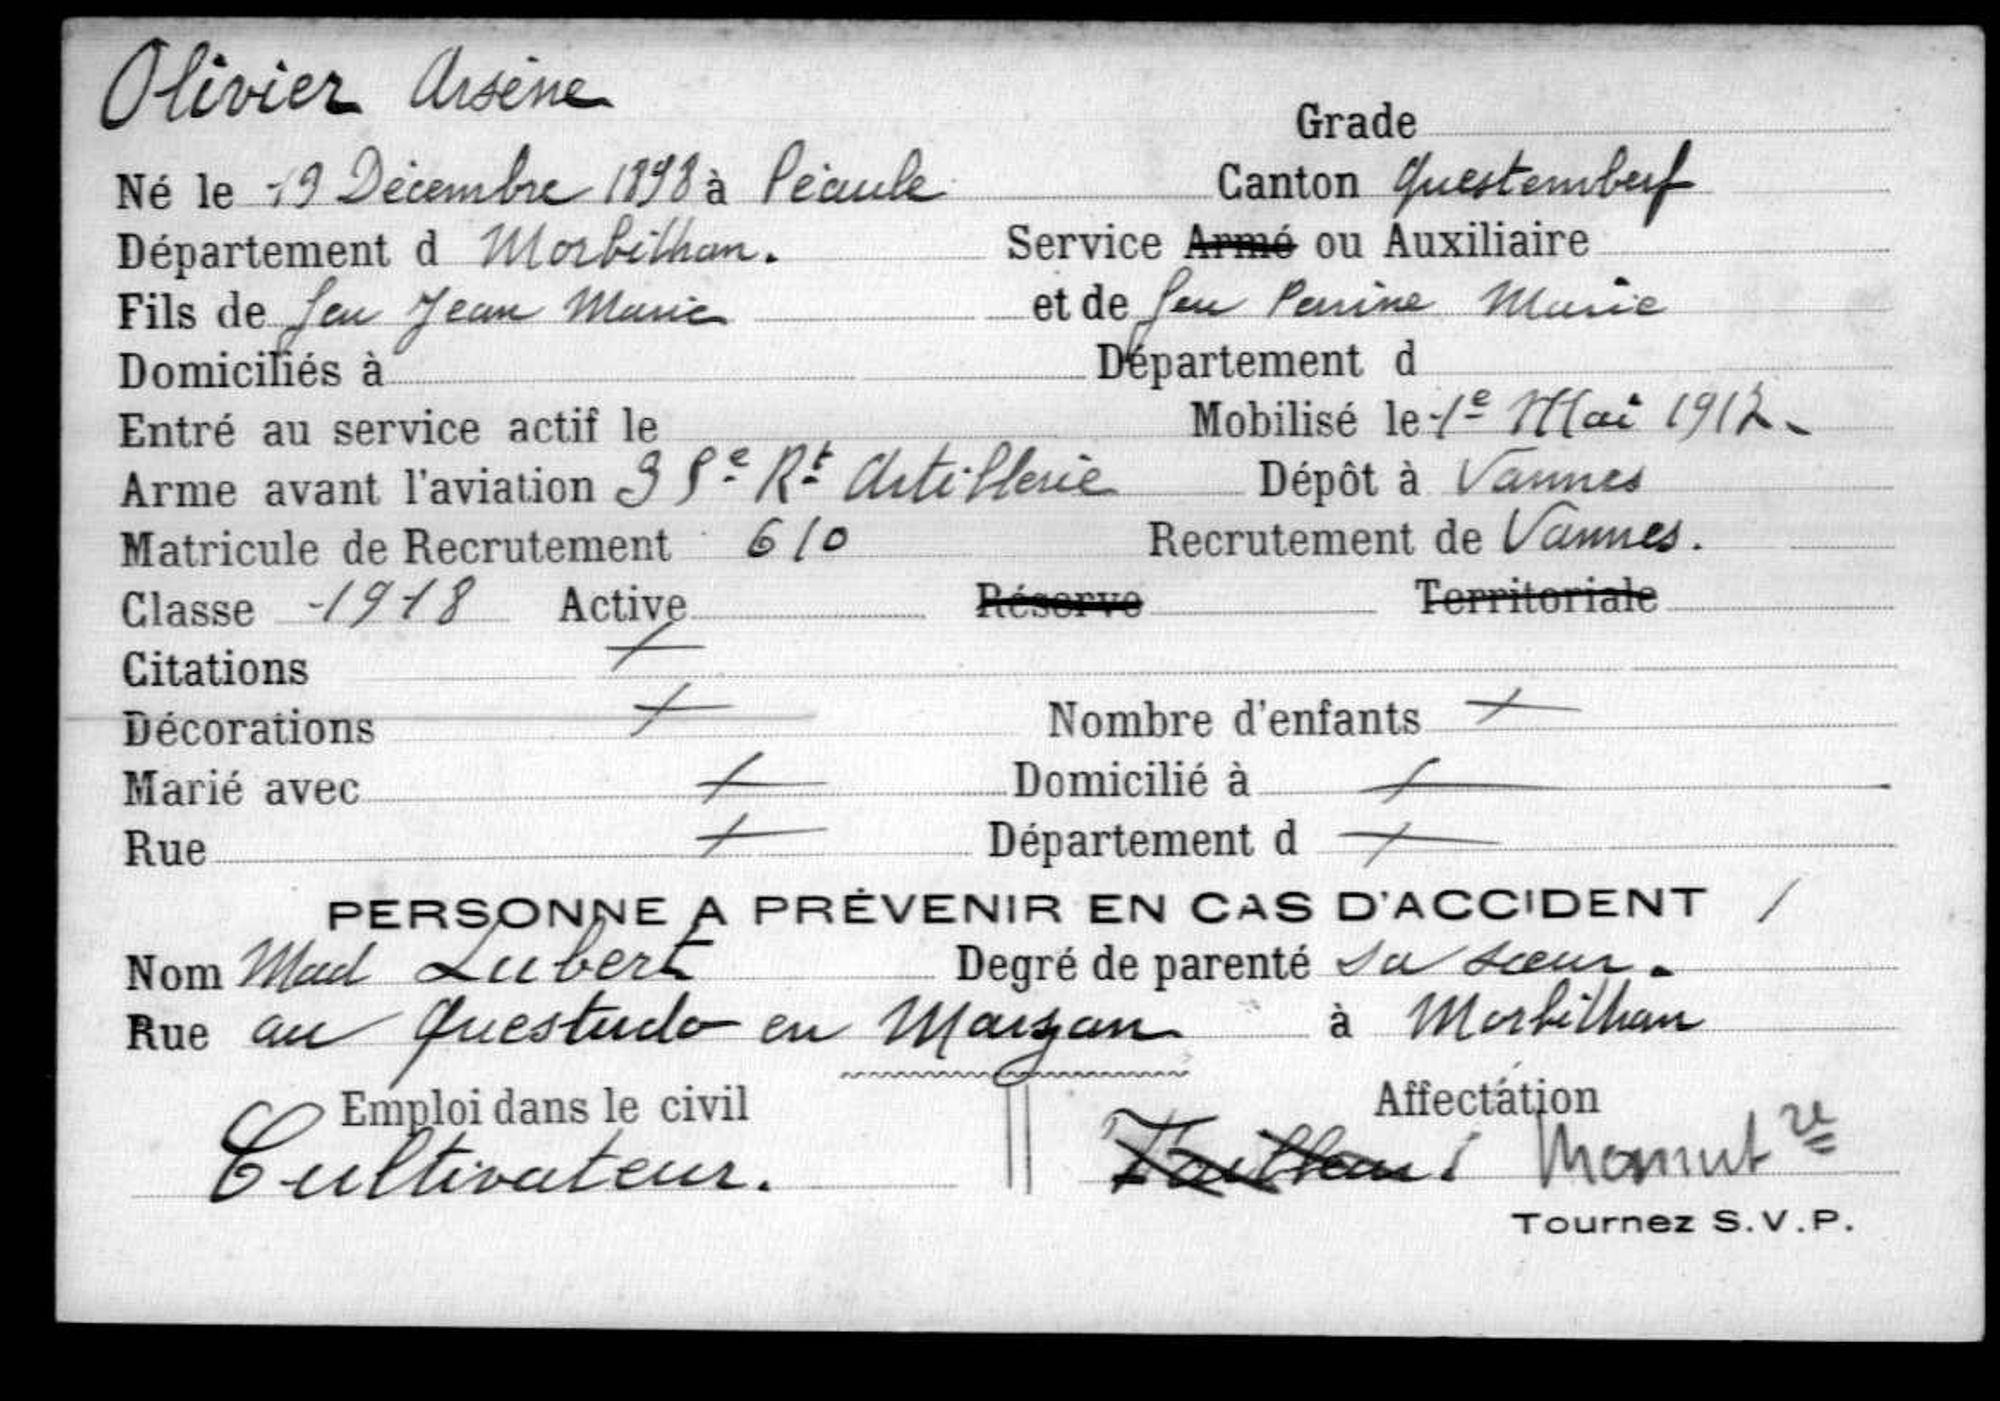 Olivier Arsène
Grade
Né le 19 Décembre 1898 à Péaule Canton Questembert
Département d Morbihan. Service Armé ou Auxiliaire
Fils de feu Jean Marie et de feu Perrine Marie
Domiciliés à Département d
Entré au service actif le Mobilisé le 1e Mai 1917
Arme avant l'aviation 35e Rt Artillerie Dépôt à Vannes
Matricule de Recrutement 610 Recrutement de Vannes.
Classe 1918 Active Réserve Territoriale
Citations
Décorations Nombre d'enfants
Marié avec Domicilié à
Rue Département d
PERSONNE A PRÉVENIR EN CAS D'ACCIDENT
Nom Mad Lubert Degré de parenté sa sœur.
Rue au Questudo en Marzan à Morbihan
Emploi dans le civil Affectation
Cultivateur.
Tournez S.V.P.